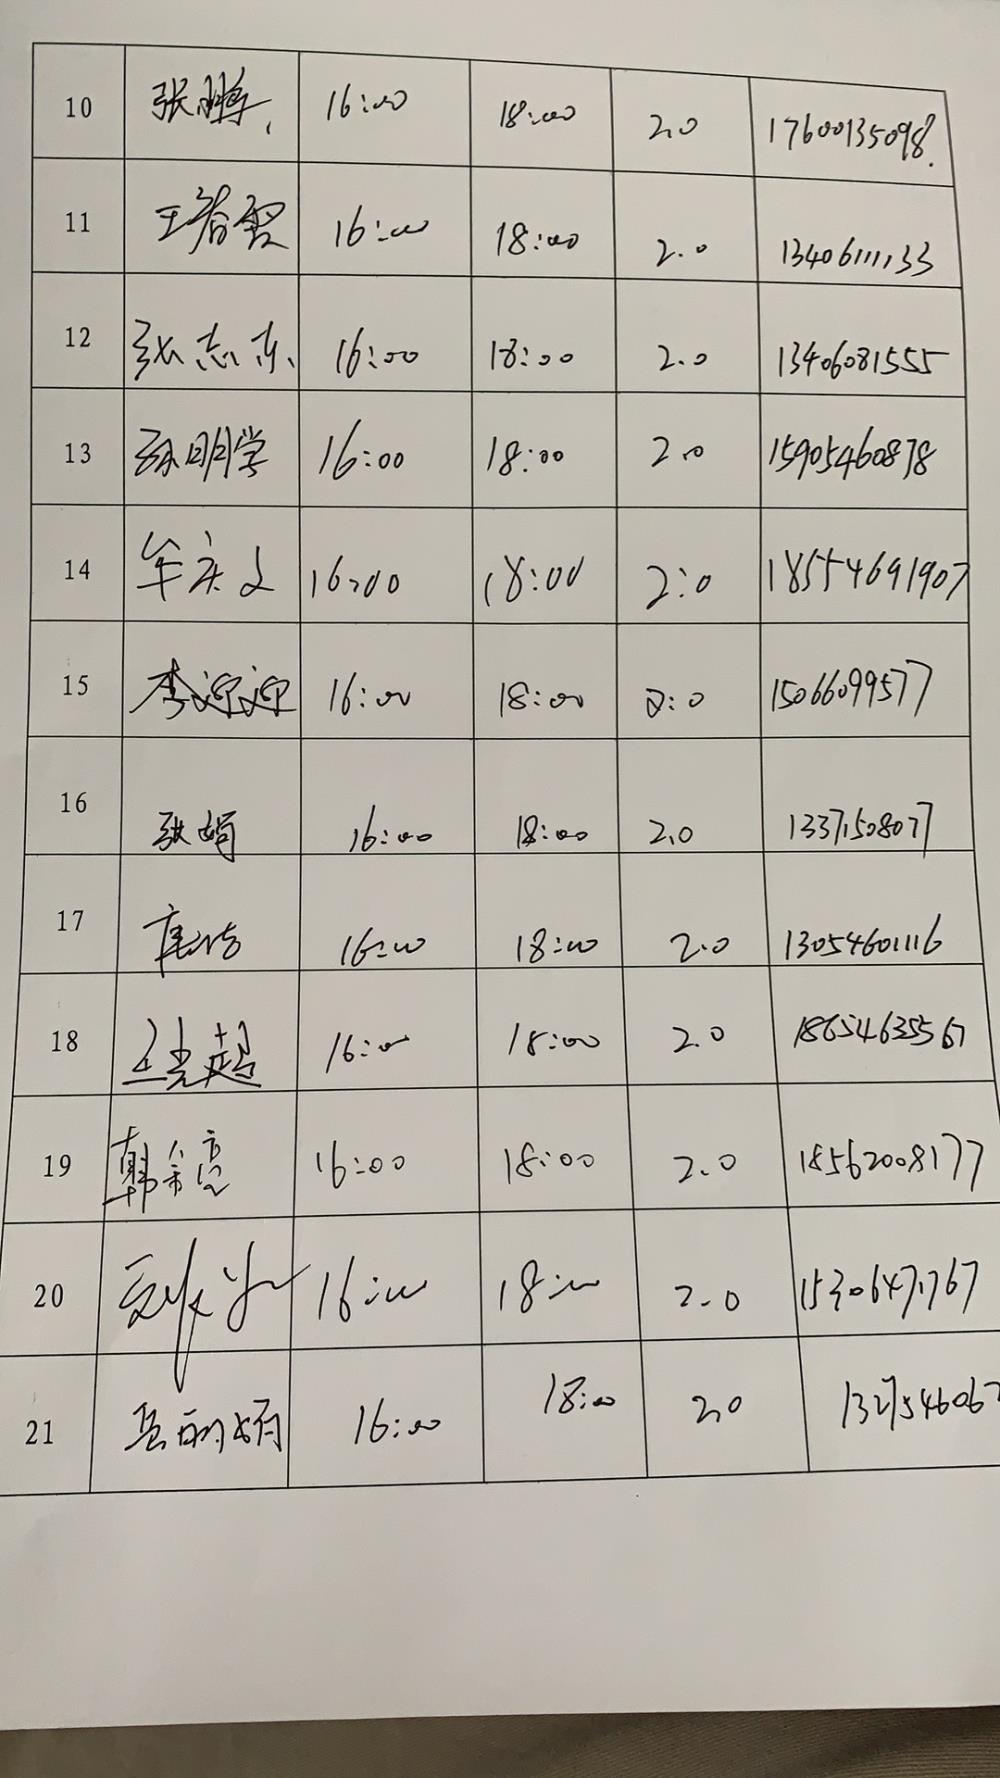 10 张鹏 16:00 18:00 2.0 17600135098.
11 王春雪 16:00 18:00 2.0 13406111133
12 张志东 16:00 18:00 2.0 13406081555
13 孙明学 16:00 18:00 2.0 15905460878
14 牟庆文 16:00 18:00 2:0 18554691907
15 李迎迎 16:00 18:00 2:0 15066099577
16 张娟 16:00 18:00 2.0 13371508077
17 16:00 18:00 2.0 13054601116
18 王光超 16:00 18:00 2.0 18654635567
19 韩余亮 16:00 18:00 2.0 18562008177
20 16:00 18:00 2.0 15306471767
21 16:00 18:00 2.0